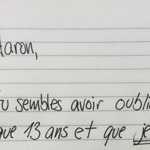 Aaron,
Tu sembles avoir oubli
que 13 ans et que je